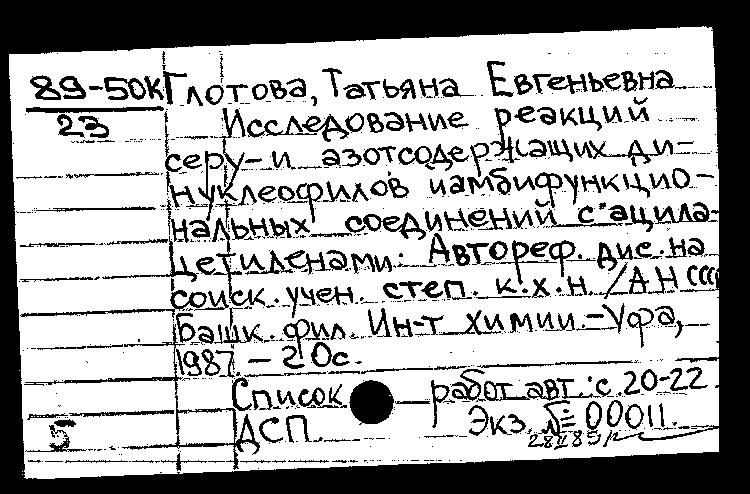 89-50К Глотова, Татьяна Евгеньевна
23 Исследование реакций
серу- и азотсодержащих ди-
нуклеофилов и амбифункцио-
нальных соединений с ацила-
цетиленами: Автореф. дис. на
соиск. учен. степ. к.х.н. /АН СССР
Башк. фил. Ин-т химии.-Уфа,
1987. - 20с.
Список работ авт.: с. 20-22.
5 ДСП. Экз. № 00011.